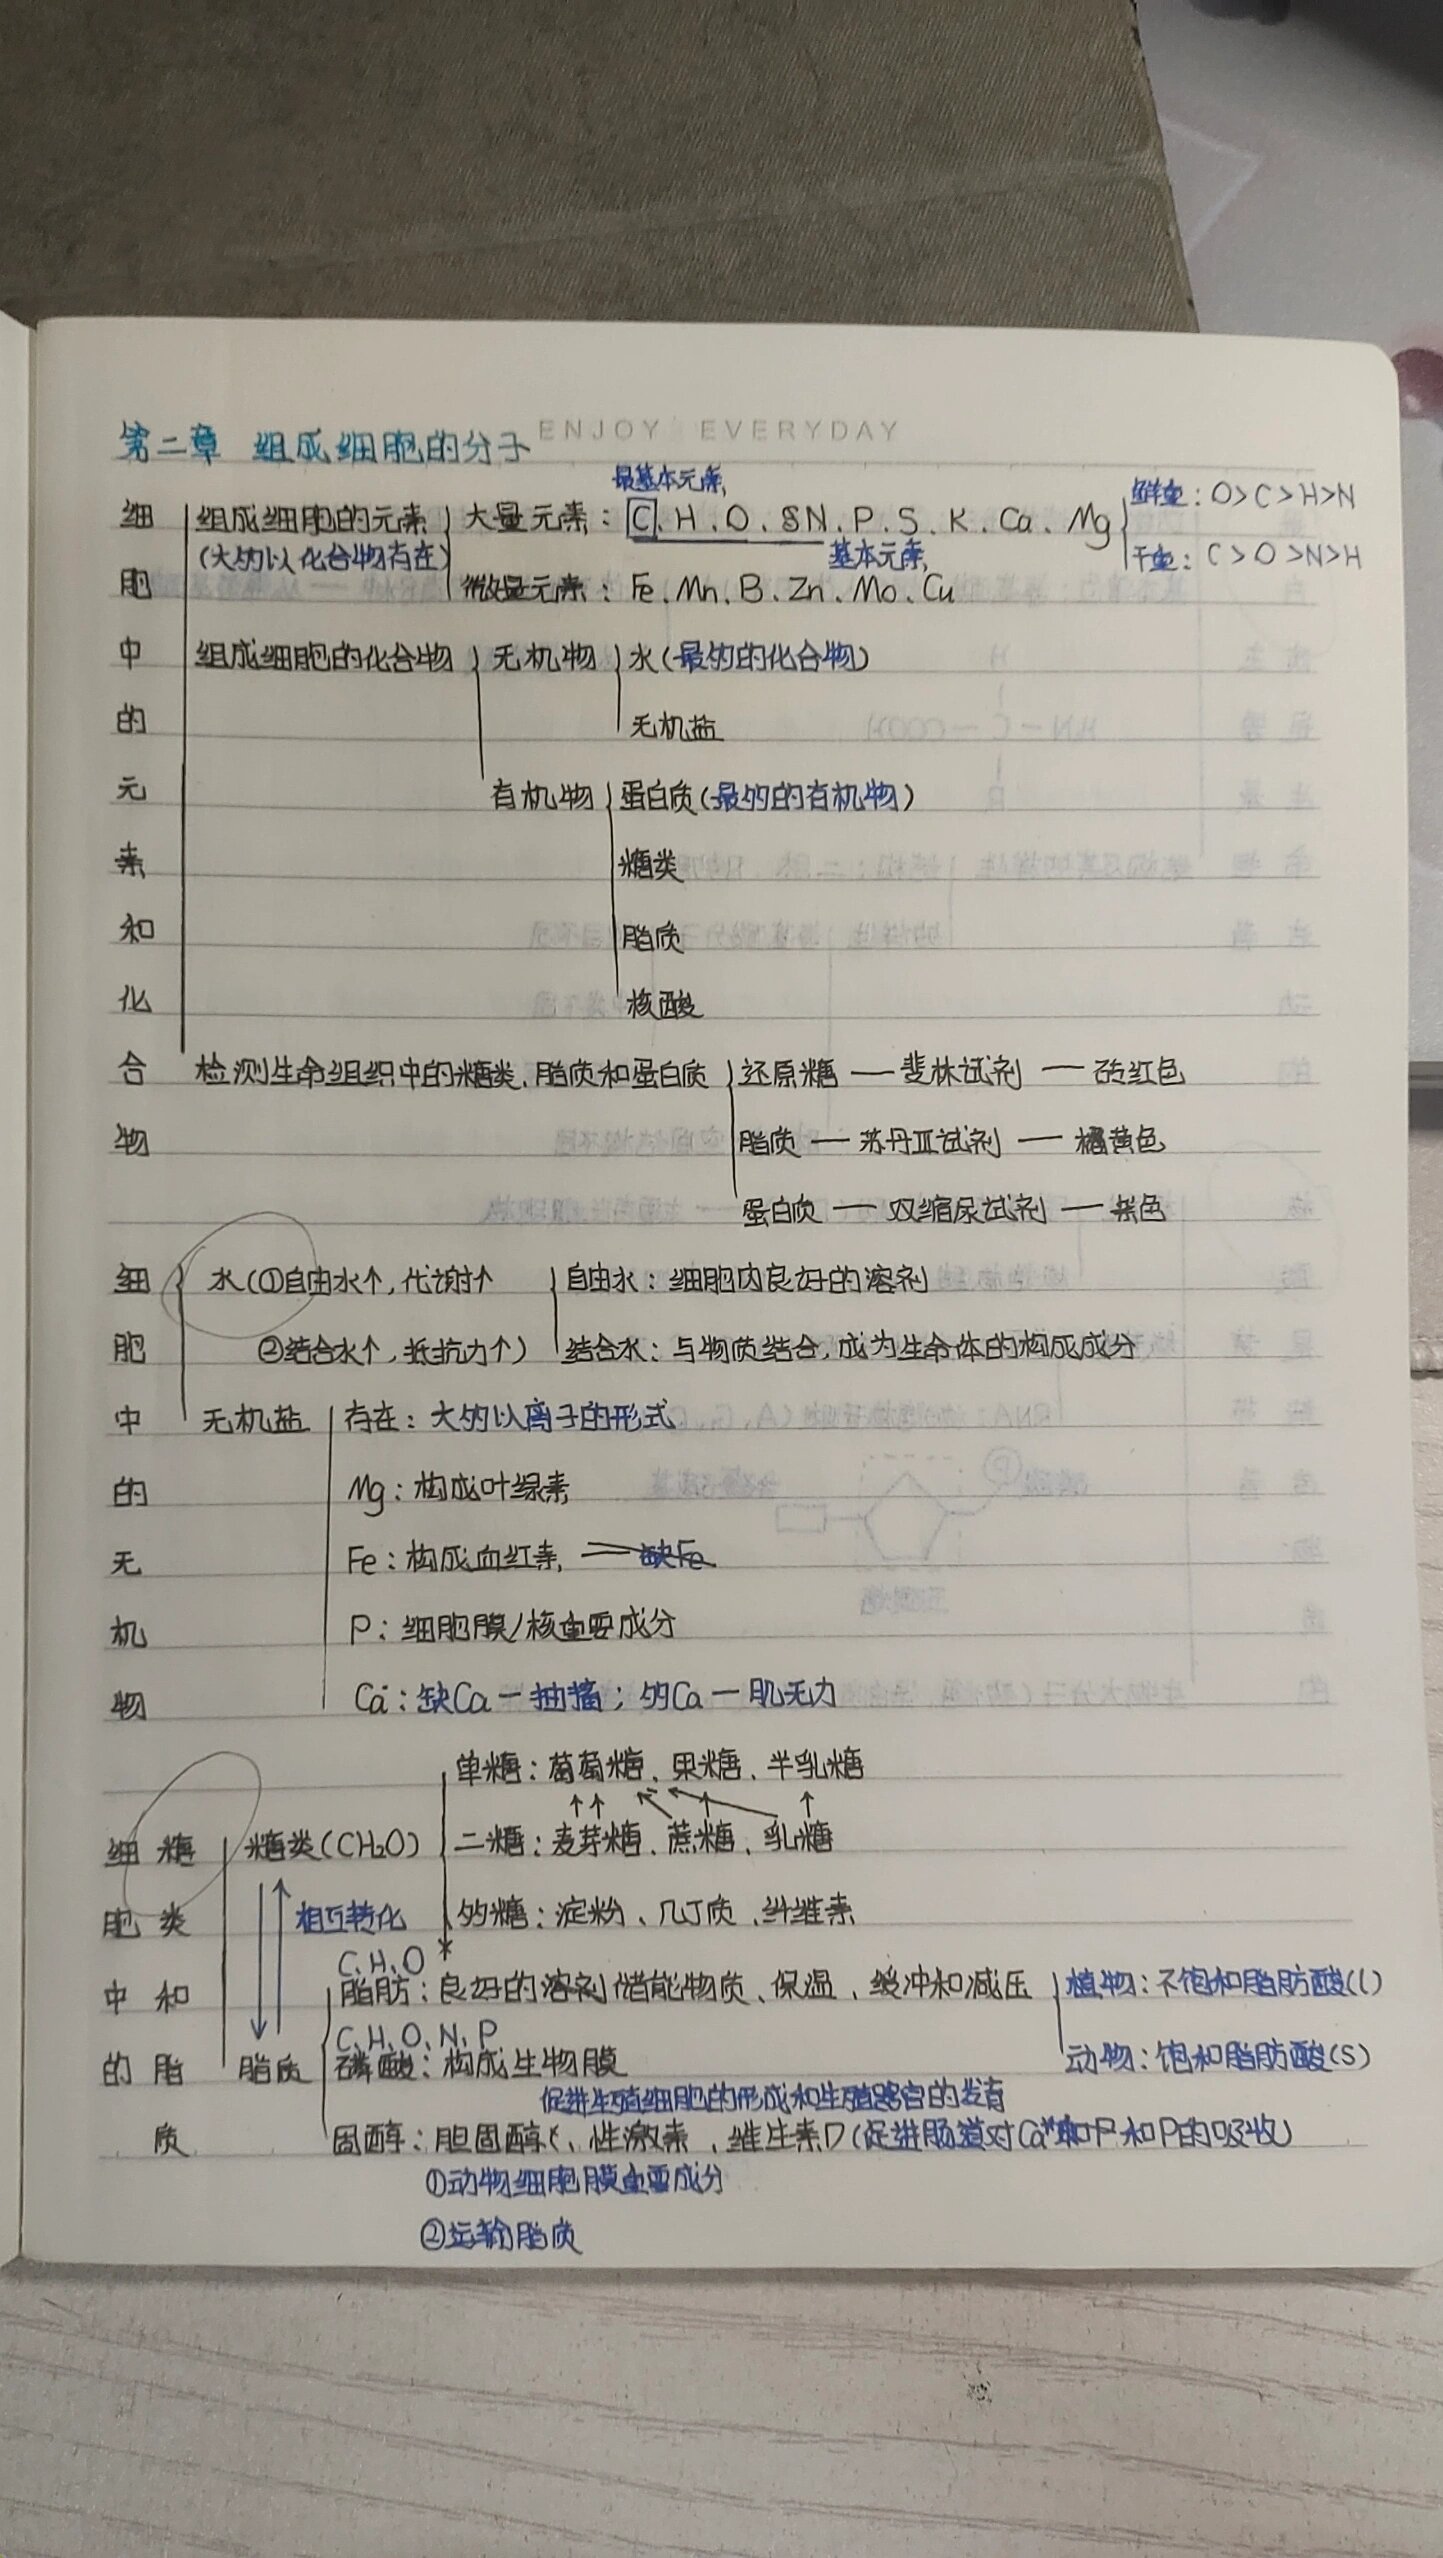 ENJOY EVERYDAY
第二章 组成细胞的分子
细胞中的元素和化合物
最基本元素
组成细胞的元素 大量元素：C、H、O、N、P、S、K、Ca、Mg 鲜重：O>C>H>N
(大多以化合物存在) 基本元素 干重：C>O>N>H
微量元素：Fe、Mn、B、Zn、Mo、Cu
组成细胞的化合物 无机物 水(最多的化合物)
无机盐
有机物 蛋白质(最多的有机物)
糖类
脂质
核酸
检测生命组织中的糖类、脂质和蛋白质 还原糖 — 斐林试剂 — 砖红色
脂质 — 苏丹Ⅲ试剂 — 橘黄色
蛋白质 — 双缩尿试剂 — 紫色
细胞中的无机物
水(①自由水↑,代谢↑ 自由水：细胞内良好的溶剂
②结合水↑,抵抗力↑) 结合水：与物质结合,成为生命体的构成成分
无机盐 存在：大多以离子的形式
Mg：构成叶绿素
Fe：构成血红素
P：细胞膜/核重要成分
Ca：缺Ca—抽搐；多Ca—肌无力
细胞中的糖类和脂质
单糖：葡萄糖、果糖、半乳糖
糖类(CH₂O) 二糖：麦芽糖、蔗糖、乳糖
相互转化 多糖：淀粉、几丁质、纤维素
C、H、O
脂肪：良好的溶剂储能物质、保温、缓冲和减压 植物：不饱和脂肪酸(l)
C、H、O、N、P
脂质 磷酸：构成生物膜 动物：饱和脂肪酸(S)
促进生殖细胞的形成和生殖器官的发育
固醇：胆固醇、性激素、维生素D(促进肠道对Ca和P的吸收)
①动物细胞膜重要成分
②运输脂质